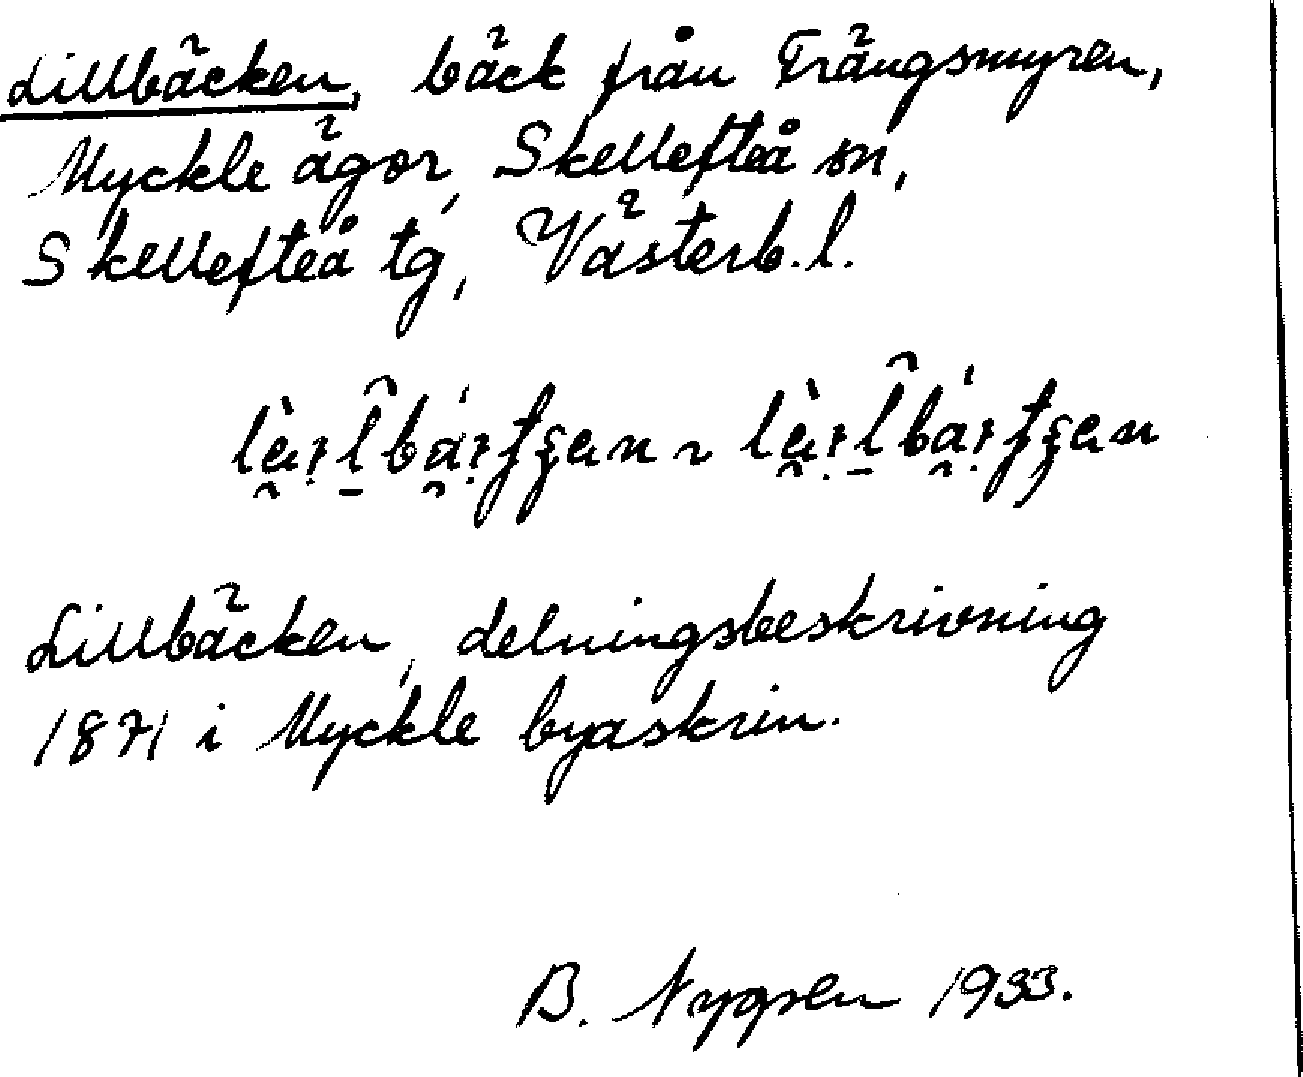 Lillbäcken, bäck från Trängsmyren,
Myckle ägor, Skellefteå sn,
Skellefteå tg, Västerb. l.
Lillbäcken, delningsbeskrivning
1871 i Myckle byaskrin.
B. Nygren 1933.